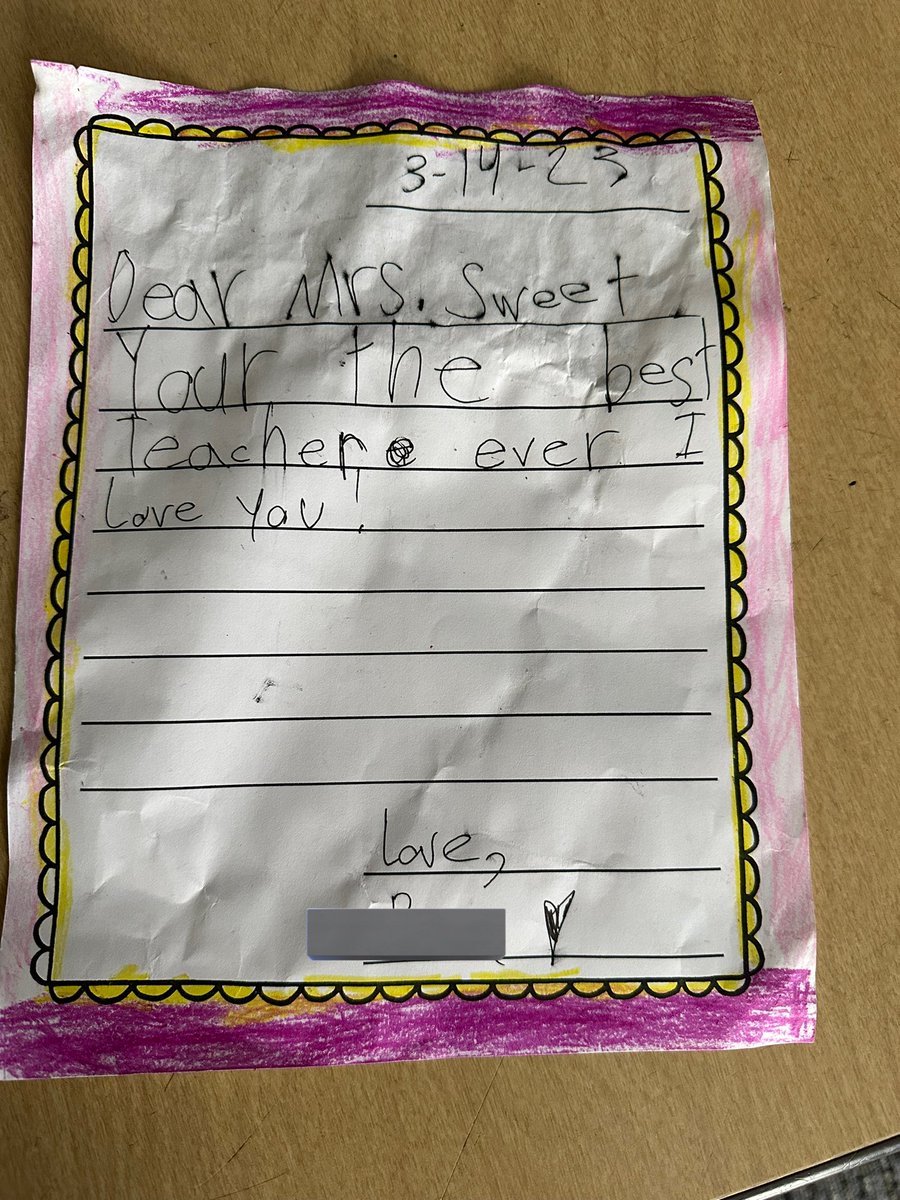 3-14-23
Dear Mrs. Sweet
Your the best
Teacher ever I
Love you!
Love,